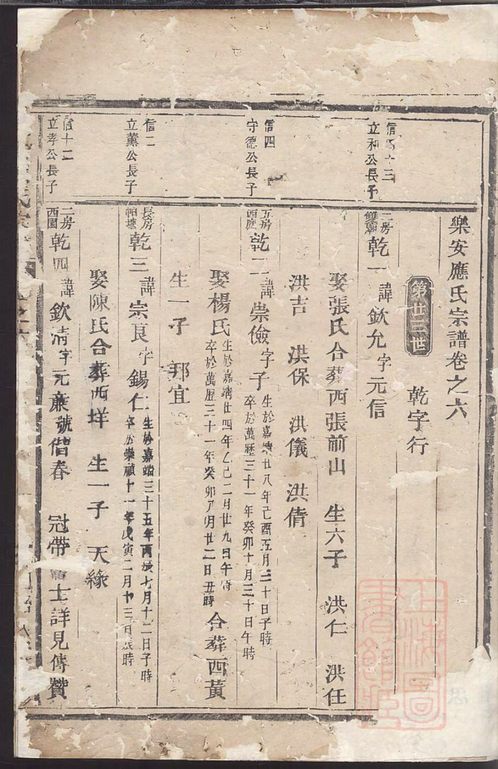 樂安應氏宗譜卷之六
第廿三世　乾字行
立和公長子
二房 乾一 諱欽允字元信
娶張氏合葬西張前山　生六子　洪仁　洪任
洪吉　洪保　洪儀　洪倩
信四
守德公長子
五房 乾二 諱崇儉字子 生於嘉靖廿八年己酉五月三十日子時 卒於萬歷三十一年癸卯十月三十日午時
娶楊氏 生於嘉靖廿四年乙巳二月廿九日午時 卒於萬歷三十一年癸卯 月廿二日丑時 合葬西黃
生一子　邦宜
信二
立黨公長子
長房 乾三 諱宗良字錫仁 生於嘉靖三十五年丙辰七月十二日子時 卒於崇禎十一年戊寅二月十三日辰時
娶陳氏合葬西垟　生一子　天緣
信十二
立孝公長子
二房 西園 乾四 諱欽清字元廉號借春　冠帶 士詳見傳贊